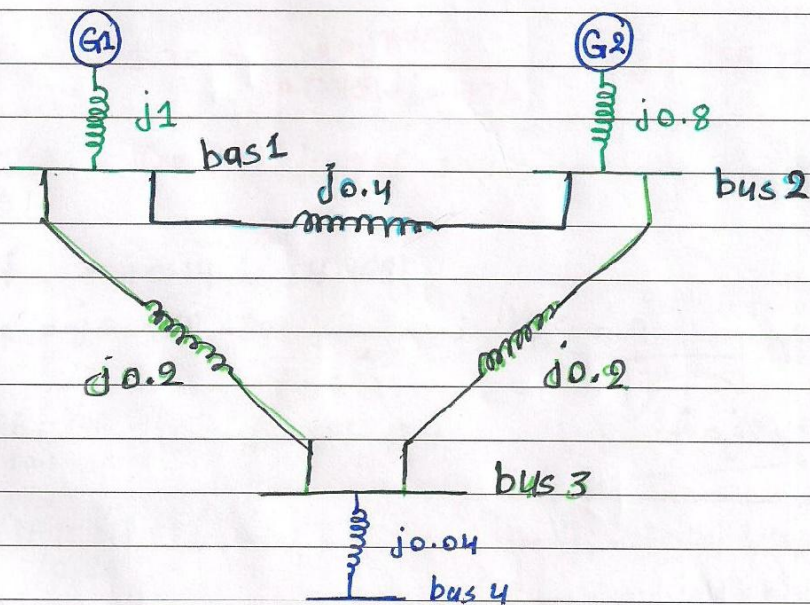 G1
G2
j1
j0.8
bas1
bus 2
j0.4
j0.2
j0.2
bus 3
j0.04
bus 4